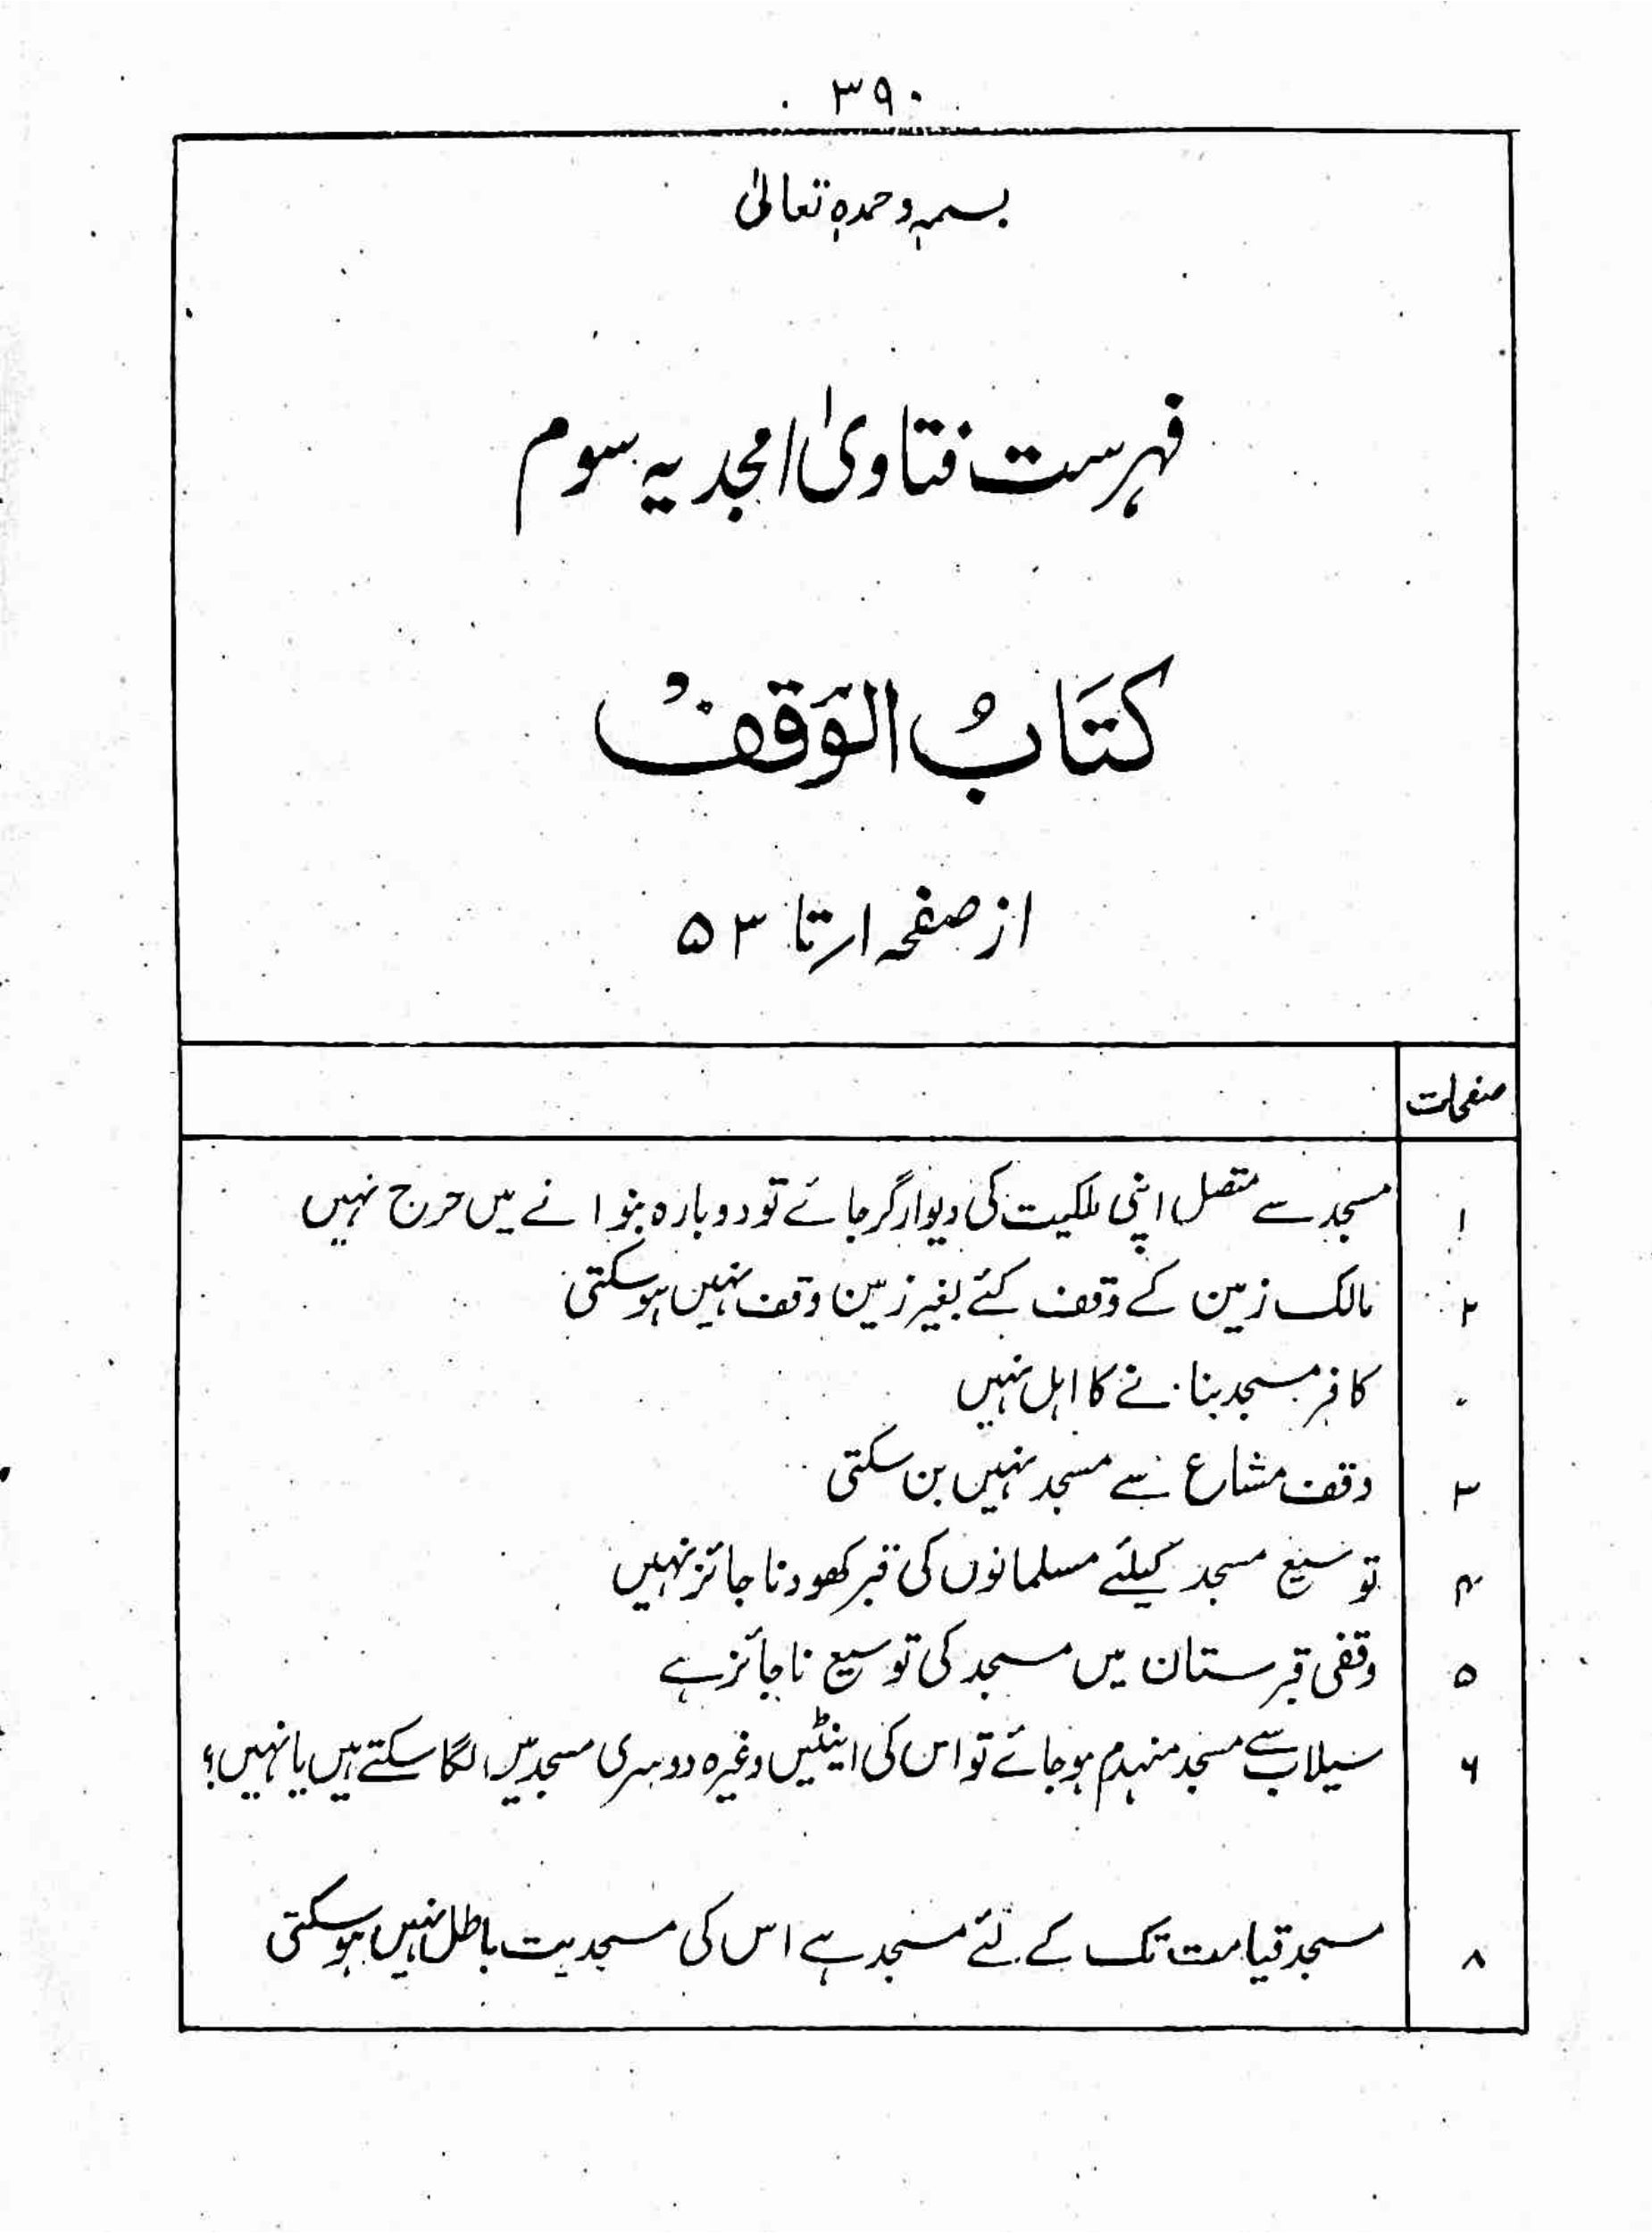 ۳۹۰
بسمہٖ وحمدہٖ تعالیٰ
فہرست فتاویٰ امجدیہ سوم
کتَابُ الوَقفُ
از صفحہ ۱ تا ۵۳
صفحات
۱ مسجد سے متصل اپنی ملکیت کی دیوار گر جائے تو دوبارہ بنوانے میں حرج نہیں
۲ مالک زمین کے وقف کئے بغیر زمین وقف نہیں ہو سکتی
〃 کافر مسجد بنانے کا اہل نہیں
۳ وقف مشاع سے مسجد نہیں بن سکتی
۴ توسیع مسجد کیلئے مسلمانوں کی قبر کھودنا جائز نہیں
۵ وقفی قبرستان میں مسجد کی توسیع ناجائز ہے
۶ سیلاب سے مسجد منہدم ہو جائے تو اس کی اینٹیں وغیرہ دوسری مسجد میں لگا سکتے ہیں یا نہیں؟
۸ مسجد قیامت تک کے لئے مسجد ہے اس کی مسجدیت باطل نہیں ہو سکتی